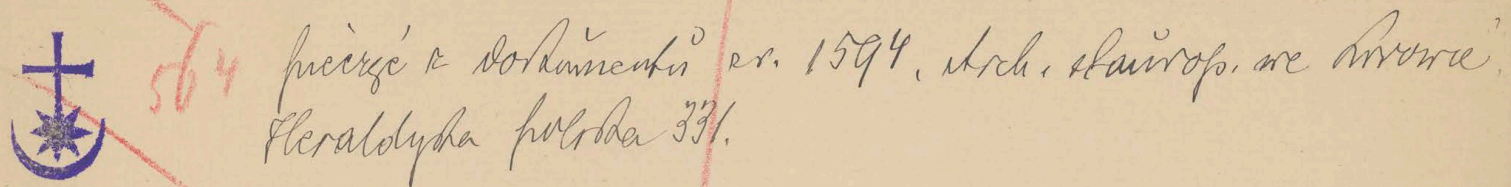 564
pieczęć z dokumentu z r. 1594, Arch. staurop. we Lwowie.
Heraldyka polska 331.